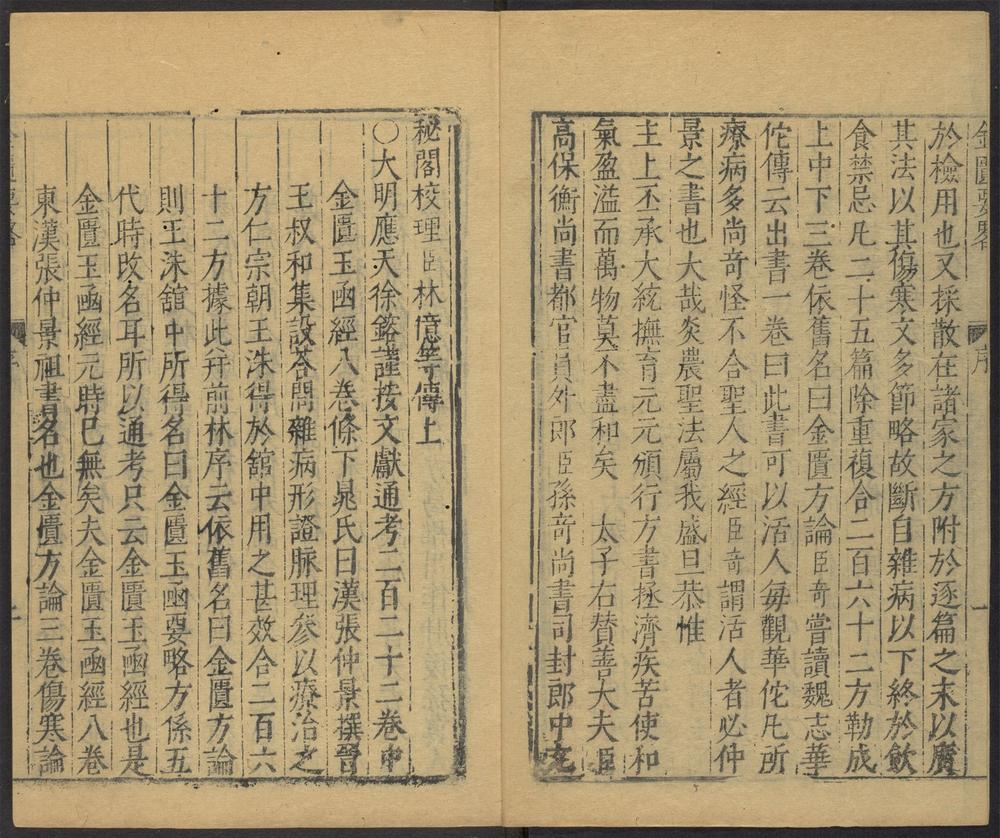 金匱要略
序
一
於檢用也又採散在諸家之方附於逐篇之末以廣
其法以其傷寒文多節略故斷自雜病以下終於飲
食禁忌凡二十五篇除重複合二百六十二方勒成
上中下三卷依舊名曰金匱方論臣奇嘗讀魏志華
佗傳云出書一卷曰此書可以活人每觀華佗凡所
療病多尚奇怪不合聖人之經臣奇謂活人者必仲
景之書也大哉炎農聖法屬我盛旦恭惟
主上丕承大統撫育元元頒行方書拯濟疾苦使和
氣盈溢而萬物莫不盡和矣 太子右贊善大夫臣
高保衡尚書都官員外郎臣孫奇尚書司封郎中充
秘閣校理臣林億等傳上
○大明應天徐鎔謹按文獻通考二百二十二卷中
金匱玉函經八卷條下晁氏曰漢張仲景撰晉
王叔和集設荅問雜病形證脈理參以療治之
方仁宗朝王洙得於舘中用之甚效合二百六
十二方據此并前林序云依舊名曰金匱方論
則王洙舘中所得名曰金匱玉函要略方係五
代時改名耳所以通考只云金匱玉函經也是
金匱玉函經元時已無矣夫金匱玉函經八卷
東漢張仲景祖書名也金匱方論三卷傷寒論